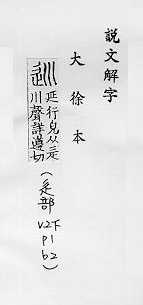 説文解字
大徐本
巡
延行皃从辵
川聲詳遵切
(辵部 V2下 P1 b2)